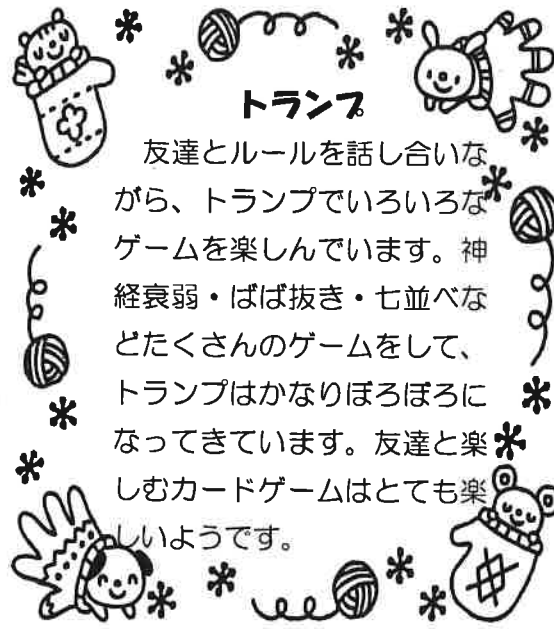 トランプ
友達とルールを話し合いな
がら、トランプでいろいろな
ゲームを楽しんでいます。神
経衰弱・ばば抜き・七並べな
どたくさんのゲームをして、
トランプはかなりぼろぼろに
なってきています。友達と楽
しむカードゲームはとても楽
しいようです。